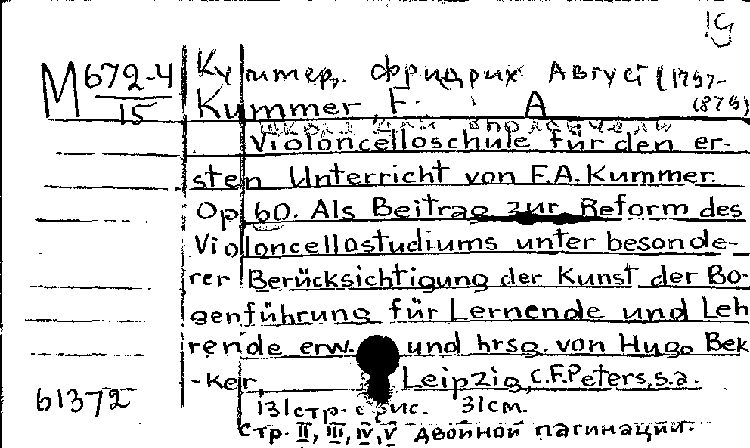 19
М 672-4/15
Куммер, Фридрих Август (1797-1879)
Kummer, F. A
Школа для виолончели
Violoncelloschule für den er-
sten Unterricht von F.A. Kummer.
Op. 60. Als Beitrag zur Reform des
Violoncellostudiums unter besonde-
rer Berücksichtigung der Kunst der Bo-
genführung für Lernende und Leh
rende erw. und hrsg. von Hugo Bek
-ker. Leipzig, C.F.Peters, s.a.
131 стр. с рис. 31см.
61372
Стр. II, III, IV, V двойной пагинации.